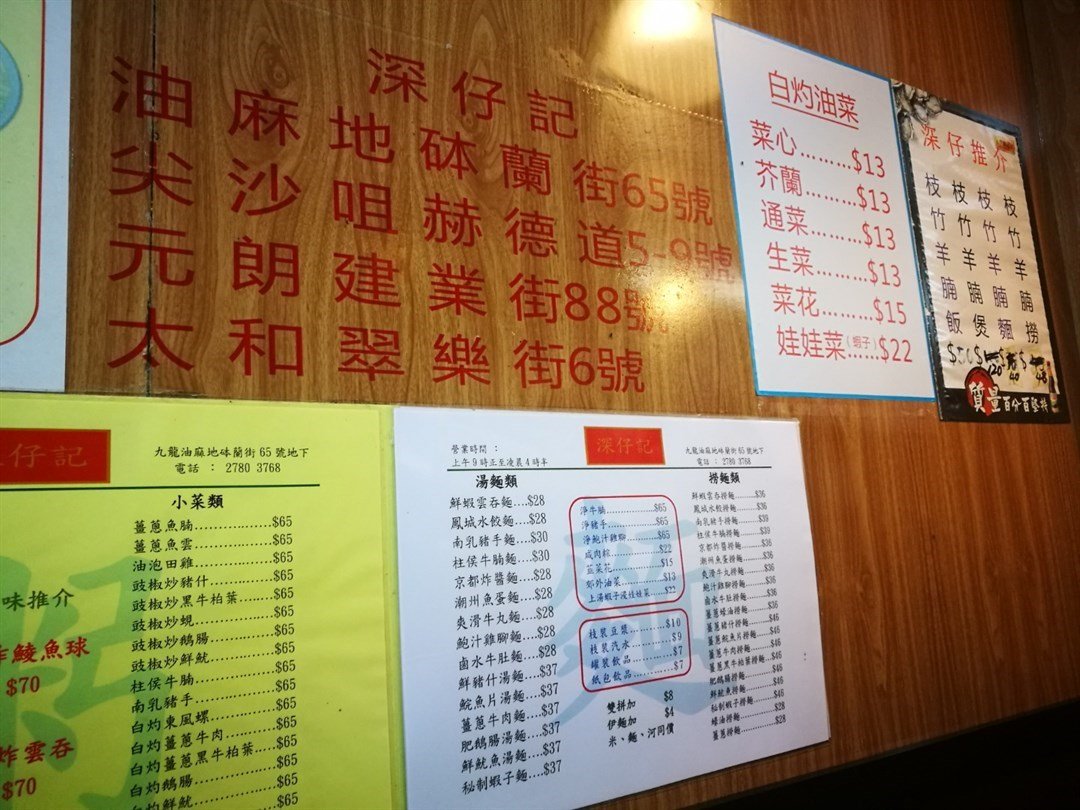 深仔記
油麻地砵蘭街65號
尖沙咀赫德道5-9號
元朗建業街88號
太和翠樂街6號
白灼油菜
菜心.........$13
芥蘭.........$13
通菜.........$13
生菜.........$13
菜花.........$15
娃娃菜(蝦子)......$22
深仔推介
枝枝枝枝
竹竹竹竹
羊羊羊羊
腩腩腩腩
飯煲麵撈
質量百分百堅持
仔記
九龍油麻地砵蘭街 65 號地下
電話 : 2780 3768
小菜類
薑蔥魚腩................$65
薑蔥魚雲................$65
油泡田雞................$65
豉椒炒豬什.............$65
豉椒炒黑牛柏葉.......$65
豉椒炒蜆................$65
豉椒炒鵝腸.............$65
豉椒炒鮮魷.............$65
柱侯牛腩................$65
南乳豬手................$65
白灼東風螺.............$65
白灼薑蔥牛肉..........$65
白灼薑蔥黑牛柏葉....$65
白灼鵝腸................$65
白灼鮮魷................$65
味推介
炸鯪魚球
$70
炸雲吞
$70
營業時間 :
上午9時正至凌晨4時半
深仔記
九龍油麻地砵蘭街 65 號地下
電話 : 2780 3768
湯麵類
鮮蝦雲吞麵....$28
鳳城水餃麵....$28
南乳豬手麵....$30
柱侯牛腩麵....$30
京都炸醬麵....$28
潮州魚蛋麵....$28
爽滑牛丸麵....$28
鮑汁雞腳麵....$28
鹵水牛肚麵....$28
鮮豬什湯麵....$37
鯇魚片湯麵....$37
薑蔥牛肉麵....$37
肥鵝腸湯麵....$37
鮮魷魚湯麵....$37
秘制蝦子麵....$37
淨牛腩...............$65
淨豬手...............$65
淨鮑汁雞腳.........$65
咸肉粽...............$22
韮菜花...............$15
郊外油菜............$13
上湯蝦子浸娃娃菜......$22
枝裝豆漿............$10
枝裝汽水............$9
罐裝飲品............$7
紙包飲品............$7
雙拼加 $8
伊麵加 $4
米、麵、河同價
撈麵類
鮮蝦雲吞撈麵.........$36
鳳城水餃撈麵.........$36
南乳豬手撈麵.........$39
柱侯牛腩撈麵.........$39
京都炸醬撈麵.........$36
潮州魚蛋撈麵.........$36
爽滑牛丸撈麵.........$36
鮑汁雞腳撈麵.........$36
鹵水牛肚撈麵.........$36
薑蔥蠔油撈麵.........$36
薑蔥豬什撈麵.........$46
薑蔥鯇魚片撈麵......$46
薑蔥牛肉撈麵.........$46
薑蔥黑牛柏葉撈麵...$46
肥鵝腸撈麵............$46
鮮魷魚撈麵............$46
秘制蝦子撈麵.........$46
蠔油撈麵...............$28
薑蔥撈麵...............$28